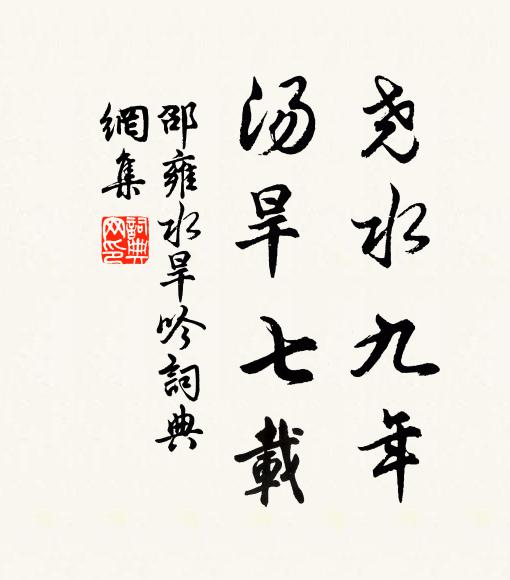 尧水九年
汤旱七載
邵雍水旱吟詞典
網集
詞典
网印